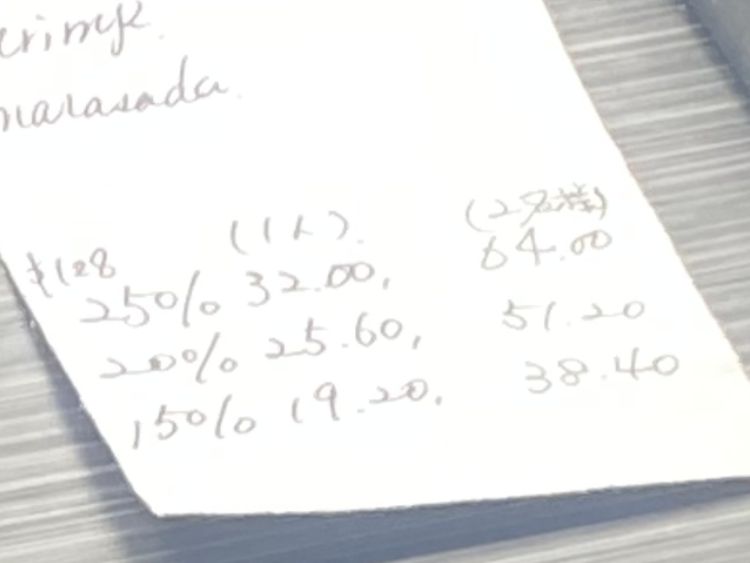 marasada.
(1人). (2名様)
$128
25% 32.00, 64.00
20% 25.60, 51.20
15% 19.20. 38.40